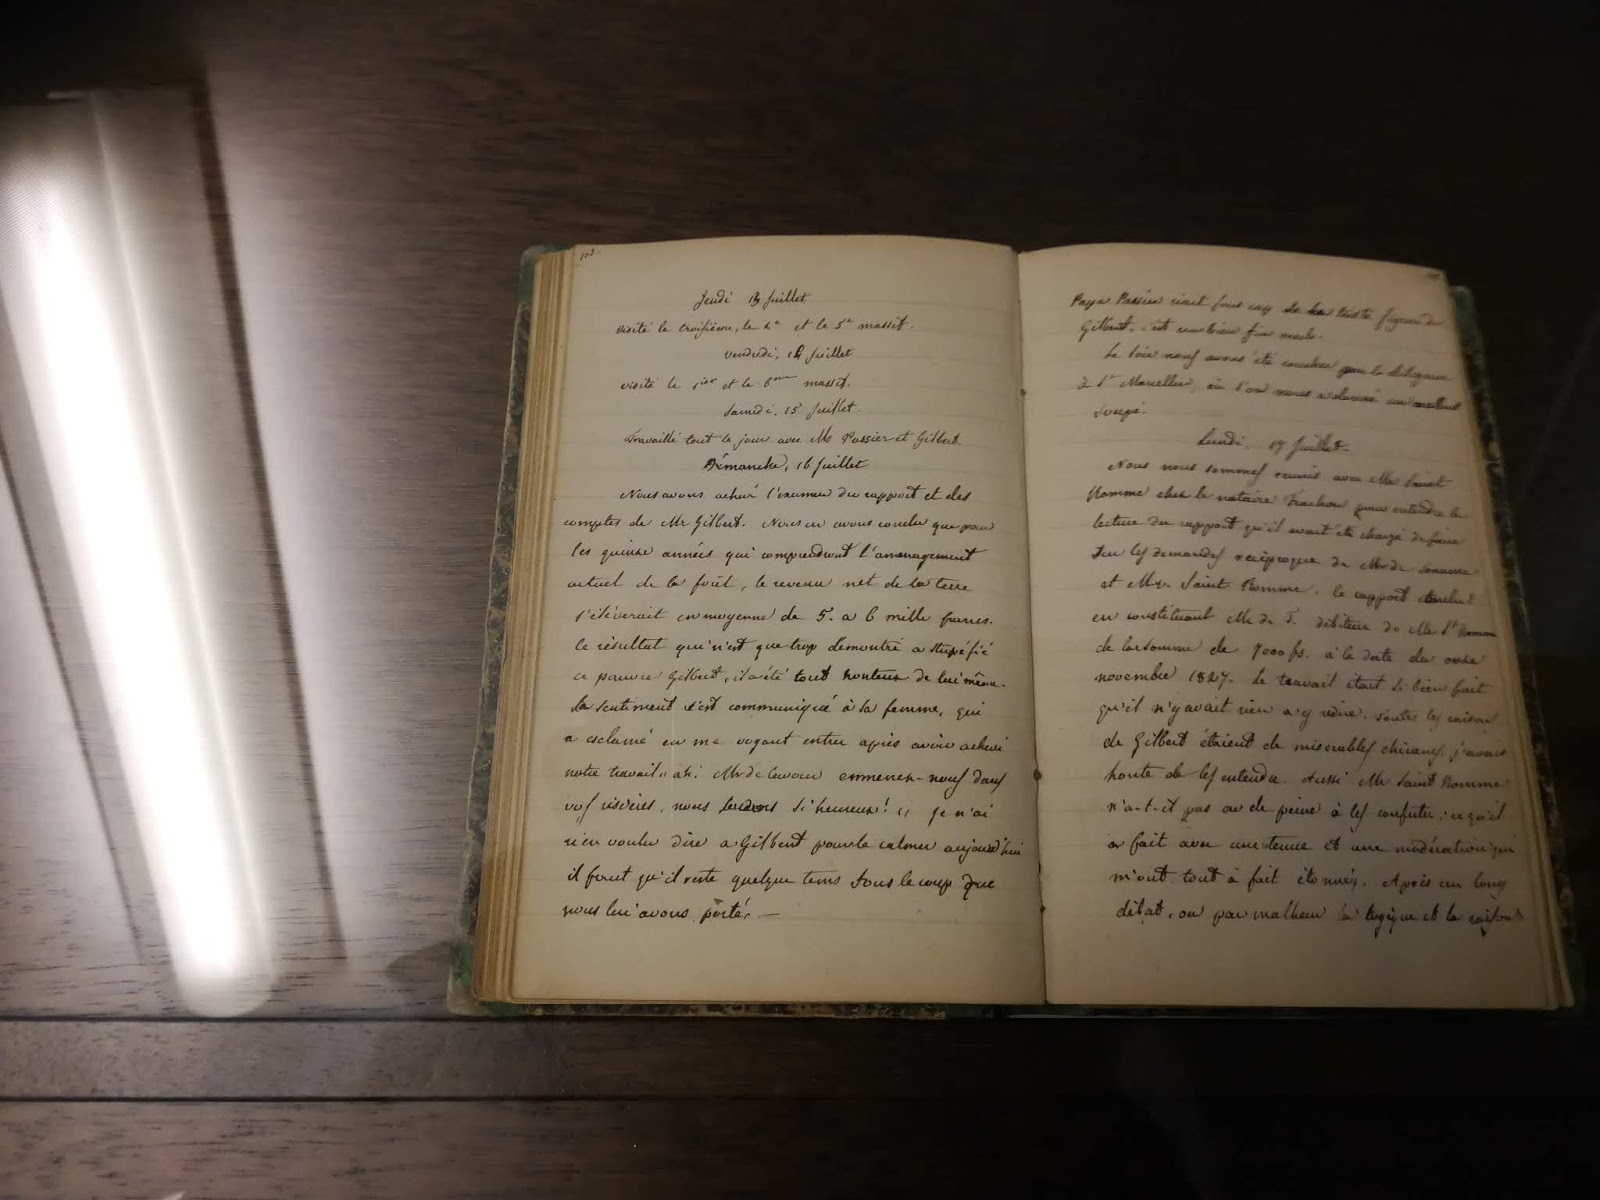 103.
Jeudi 13 Juillet
visité le troisième, le 4e et le 5e massif.
Vendredi, 14 Juillet
visité le 1ier et le 6eme massif.
Samedi, 15 Juillet.
Travaillé tout le jour avec Mrs Passier et Gilbert.
Dimanche, 16 Juillet
Nous avons achevé l'examen du rapport et des
comptes de Mr Gilbert. Nous en avons conclu que pour
les quinze années qui comprendront l'amenagement
actuel de la forêt, le revenu net de la terre
s'élèverait en moyenne de 5. a 6 mille francs.
le résultat qui n'est que trop démontré a stupéfié
ce pauvre Gilbert, il a été tout honteux de lui même.
Le sentiment s'est communiqué à sa femme, qui
a esclamé en me voyant entrer après avoir achevé
notre travail: ah! Mr de Cavour emmenez-nous dans
vos risières, nous serions si heureux! Je n'ai
rien voulu dire a Gilbert pour le calmer aujourd'hui
il faut qu'il reste quelque tems sous le coup que
nous lui avons porté. —
Passier riait sous cap de la triste figure de
Gilbert, c'est
Le soir nous avons été
à St Marcellin, où l'on nous a donné un excellent
soupé.
Lundi, 17 Juillet.
Nous nous sommes reunis avec Mr Saint
Romme chez le notaire pour entendre la
lecture du rapport qu'il avait été chargé de faire
sur les demandes réciproques de Mr de
et Mr Saint Romme. le rapport conclut
en constituant Mr de T. débiteur de Mr St Romme
de la somme de 7000 fs. à la date du onze
novembre 1827. Le travail était si bien fait
qu'il n'y avait rien a y redire. Toutes les raisons
de Gilbert étaient de miserables chicanes, j'avais
honte de les entendre. Aussi Mr Saint Romme
n'a-t-il pas eu de peine à les confuter; ce qu'il
a fait avec une tenue et une modération qui
m'ont tout à fait étonnés. Après un long
débat, ou par malheur la logique et la raison